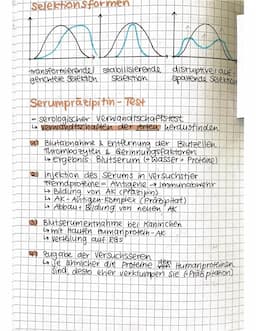 Selektionsformen
transformierende / stabilisierende disruptive / auf-
gerichtete Selektion Selektion spaltende Selektion
Serumpräzipitin-Test
- serologischer Verwandtschaftstest
↳ Verwandtschaften der Arten herausfinden
1) Blutabnahme & Entfernung der Blutzellen
Thrombozyten & Gerinnungsfaktoren
↳ Ergebnis: Blutserum (Wasser + Proteine)
2) Injektion des Serums in Versuchstier
Fremdproteine - Antigene → Immunabwehr
↳ Bildung von AK (Präzipin)
↳ AK-Antigen-Komplex (Präzipitat)
↳ Abbau + Bildung von neuen AK
3) Blutserumentnahme bei Kaninchen
↳ mit Humanprotein-AK
↳ Verteilung auf
4) Zugabe der Versuchsseren
↳ je ähnlicher die Proteine den Humanproteinen
sind, desto eher verklumpen sie (Präzipitation)